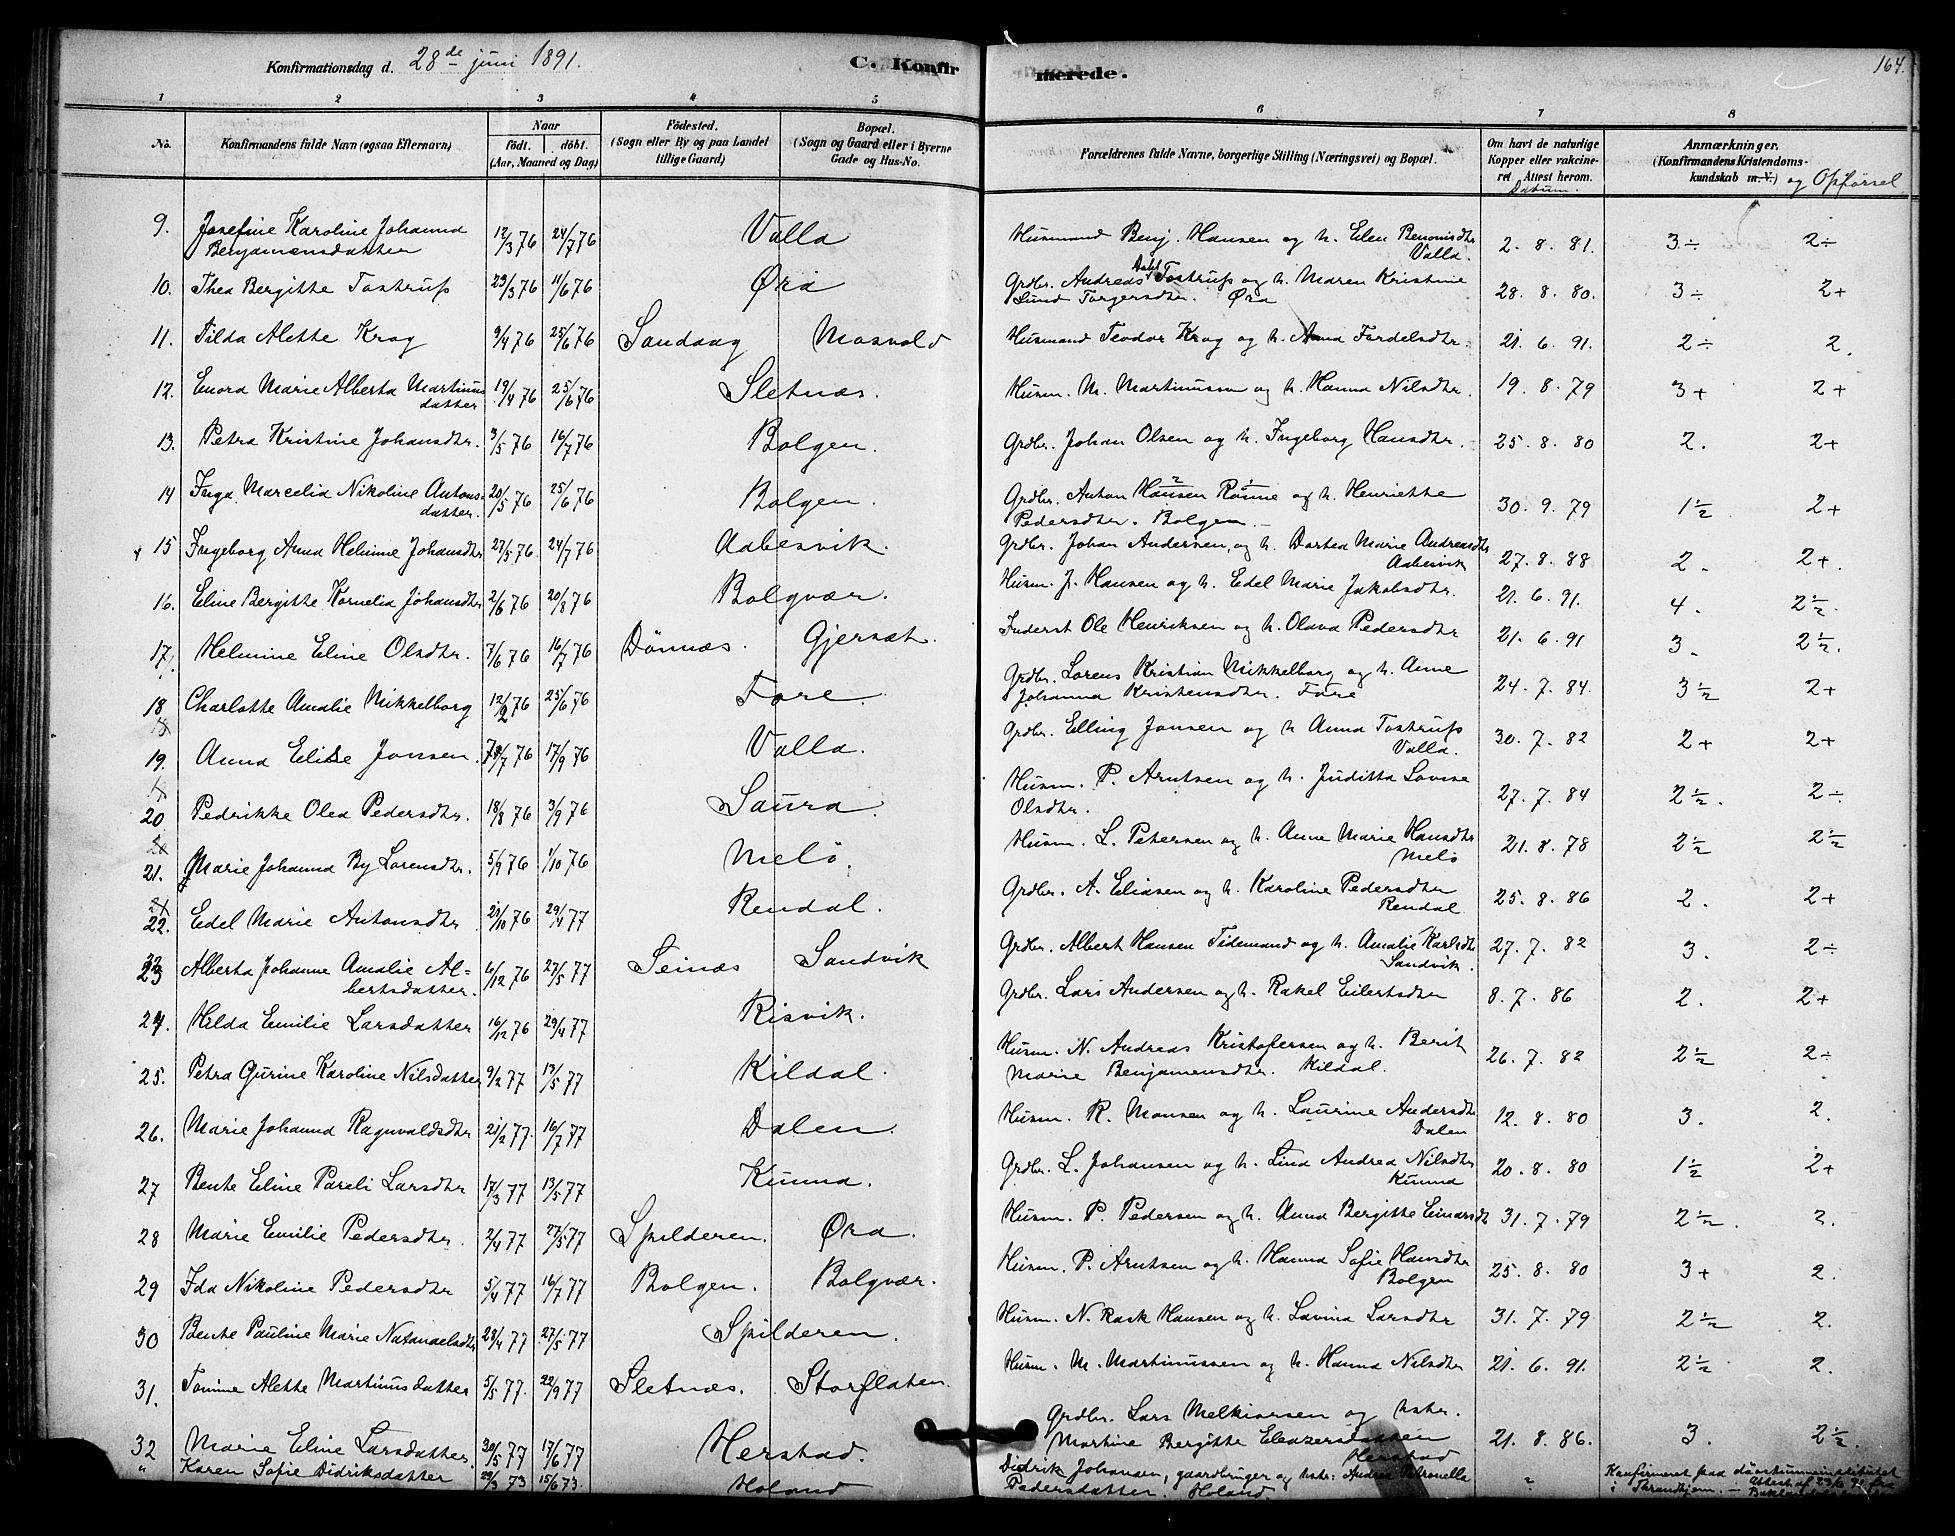 Konfirmationsdag d. 28de juni 1891.
C. Konfirmerede.
164.
1 2 3 4 5 6 7 8
No.
Konfirmandens fulde Navn (ogsaa Efternavn)
Naar
Födt. döbt.
(Aar, Maaned og Dag)
Födested.
(Sogn eller By og paa Landet
tillige Gaard)
Bopæl.
(Sogn og Gaard eller i Byerne
Gade og Hus-No.
Forældrenes fulde Navne, borgerlige Stilling (Næringsvei) og Bopæl.
Om havt de naturlige
Kopper eller vakcine-
ret Attest herom.
Datum.
Anmærkninger.
(Konfirmandens Kristendoms-
kundskab m.V.) og Opførsel
9. Josefine Karoline Johanna 12/3 76 24/7 76 Valla Husmand Benj. Hansen og h. Elen Benonisdtr 2. 8. 81. 3÷ 2÷
Benjamensdatter Valla.
10. Thea Bergitte Tostrup 23/3 76 11/6 76 Øra Grdbr. Andreas Dahl Tostrup og h. Maren Kristine 28. 8. 80. 3÷ 2+
Lund Torgersdtr. Øra
11. Tilda Alette Krog 9/4 76 25/6 76 Sandaag Mosvold Husmand Teodor Krog og h. Anna Fordelsdtr. 21. 6. 91. 2÷ 2.
12. Enora Marie Alberta Martinus 19/4 76 25/6 76 Sletnæs. Husm. M. Martinussen og h. Hanna Nilsdtr. 19. 8. 79 3+ 2+
datter
13. Petra Kristine Johansdtr. 3/5 76 16/7 76 Bolgen. Grdbr. Johan Olsen og h. Ingeborg Hansdtr. 25. 8. 80 2. 2+
14 Inga Marcelia Nikoline Antons- 20/5 76 25/6 76 Bolgen. Grdbr. Anton Hansen Rønne og h. Henriette 30. 9. 79 1½ 2+
datter. Pedersdtr. Bolgen.
15 Ingeborg Anna Helmine Johansdtr 27/5 76 24/7 76 Aabesvik. Grdbr. Johan Andersen, og h. Dortea Marie Andreasdtr 27. 8. 88 2. 2+.
Aabesvik
16. Eline Bergitte Kornelia Johansdtr 2/6 76 20/8 76 Bolgvær. Husm. J. Hansen og h. Edel Marie Jakobsdtr. 21. 6. 91. 4. 2½.
17. Helmine Eline Olsdtr. 7/6 76 16/7 76 Dönnæs. Gjersæt. Inderst Ole Henriksen og h. Olava Pedersdtr 21. 6. 91 3. 2½.
18 Charlotte Amalie Mikkelborg 12/2 76 25/6 76 Fore. Grdbr. Lorens Kristian Mikkelborg og h. Anne 24. 7. 84. 3½ 2+
Johanna Kristensdtr. Fore
19. Anna Elise Jonsen. /7 76 17/9 76 Valla. Grdbr. Elling Jonsen og h Anna Tostrup 30. 7. 82 2+ 2+
Valla.
20 Pedrikke Olea Pedersdtr. 18/8 76 3/9 76 Saura. Husm. P. Arntsen og h. Juditta Lovise 27. 7. 84 2½. 2÷
Olsdtr.
21. Marie Johanna By Lorensdtr. 5/9 76 1/10 76 Melö. Husm. L. Petersen og h. Anne Marie Hansdtr 21. 8. 78 2½ 2½
Melö
22. Edel Marie Antonsdtr 23/10 76 29/4 77 Rendal. Grdbr. A. Eliasen og h. Karoline Pedersdtr 25. 8. 86 2. 2+
Rendal
23 Alberta Johanne Amalie Al- 6/12 76 27/5 77 Seinæs Sandvik Grdbr. Albert Hansen Tidemand og h. Amalie Karlsdtr 27. 7. 82 3. 2÷
bertsdatter. Sandvik.
24. Hilda Emilie Larsdatter 16/12 76 29/4 77 Risvik. Grdbr. Lars Andersen og h. Rakel Eilertsdtr 8. 7. 86 2. 2+
25. Petra Gurine Karoline Nilsdatter 9/2 77 13/5 77 Kildal. Husm. N. Andreas Kristofersen og h. Berit 26. 7. 82 2½ 2÷
Marie Benjamensdtr. Kildal.
26. Marie Johanna Ragnvaldsdtr 21/2 77. 16/7 77 Dalen. Husm. R. Monsen og h. Laurine Andersdtr 12. 8. 80 3. 2.
Dalen
27 Bente Eline Pareli Larsdtr 17/3 77 13/5 77 Kunna. Grdbr. L. Johansen og h. Lina Andrea Nilsdtr 20. 8. 80 1½ 2+
Kunna
28 Marie Emilie Pedersdtr. 2/4 77 27/5 77 Spilderen. Øra. Husm. P. Pedersen og h. Anna Bergitte Einarsdt 31. 7. 79 2½. 2.
29 Ida Nikoline Pedersdtr 5/4 77 16/7 77 Bolgen. Bolgvær. Husm. P. Arntsen og h. Hanna Sofie Hansdtr 25. 8. 80 3+ 2.
Bolgen
30 Bente Pauline Marie Natanaelsdtr 23/4 77 27/5 77 Spilderen. Husm. N. Rask Hansen og h. Lavina Larsdtr 31. 7. 79 2½ 2.
31. Tomine Alette Martinusdatter 5/5 77. 22/9 77 Sletnæs. Storflaten. Husm. M. Martinussen og h. Hanna Nilsdtr 21. 6. 91. 2½ 2.
32 Marie Eline Larsdatter. 30/5 77 17/6 77 Herstad. Grdbr. Lars Melkiorsen og hstr. 21. 8. 86. 3. 2½.
Martine Bergitte Eleazersdatter
Herstad
" Karen Sofie Didriksdatter 29/3 73 15/6 73. Holand Didrik Johansen, gaardbruger og hstr: Andrea Petronella " Konfirmeret paa døvstummeinstitutet
Pedersdatter. Holand. i Throndhjem. — Attest af 23/6 91 fra